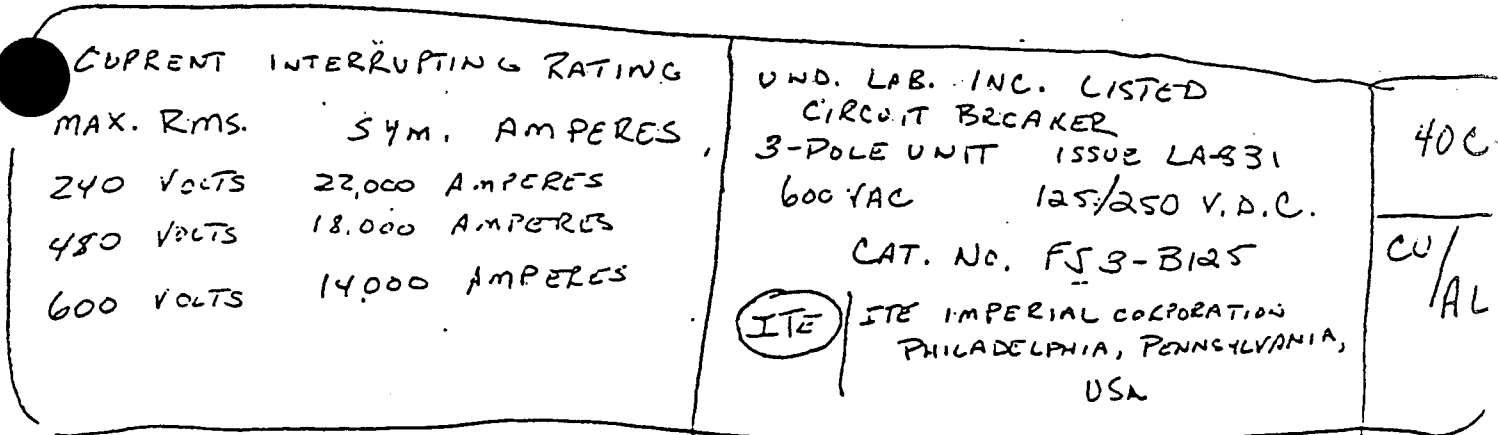 CURRENT INTERRUPTING RATING
MAX. RMS. SYM. AMPERES
240 VOLTS 22,000 AMPERES
480 VOLTS 18,000 AMPERES
600 VOLTS 14,000 AMPERES
UND. LAB. INC. LISTED
CIRCUIT BREAKER
3-POLE UNIT ISSUE LA-831
600 VAC 125/250 V.D.C.
CAT. NO. FJ3-B125
ITE
ITE IMPERIAL CORPORATION
PHILADELPHIA, PENNSYLVANIA,
USA
40C
CU/AL